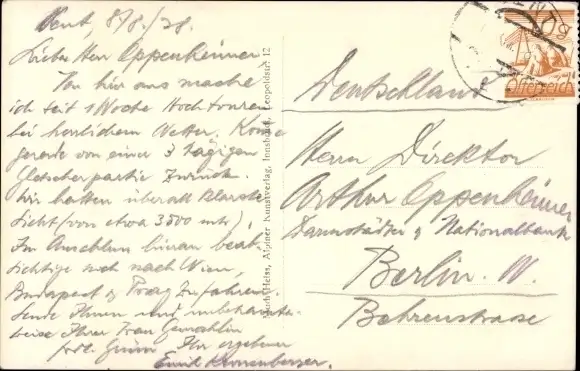 Vent, 8/8./28.
Lieber Herr Oppenheimer
Von hier aus mache
ich seit 1 Woche Hochtouren
bei herrlichem Wetter. Komme
gerade von einer 3 tägigen
Gletscherpartie zurück.
Wir hatten überall klarste
Sicht (von etwa 3500 mtr).
Im Anschluss hieran beab-
sichtige noch nach Wien,
Budapest & Prag zu fahren.
Sende Ihnen und unbekannter-
weise Ihrer Frau Gemahlin
frdl. Grüsse Ihr ergebener
Emil Kronenberger.
Heiss, Alpiner Kunstverlag, Innsbruck, Leopoldstr. 12
Deutschland
Herrn Direktor
Arthur Oppenheimer
Darmstädter & Nationalbank
Berlin. W.
Behrenstrasse
Österreich